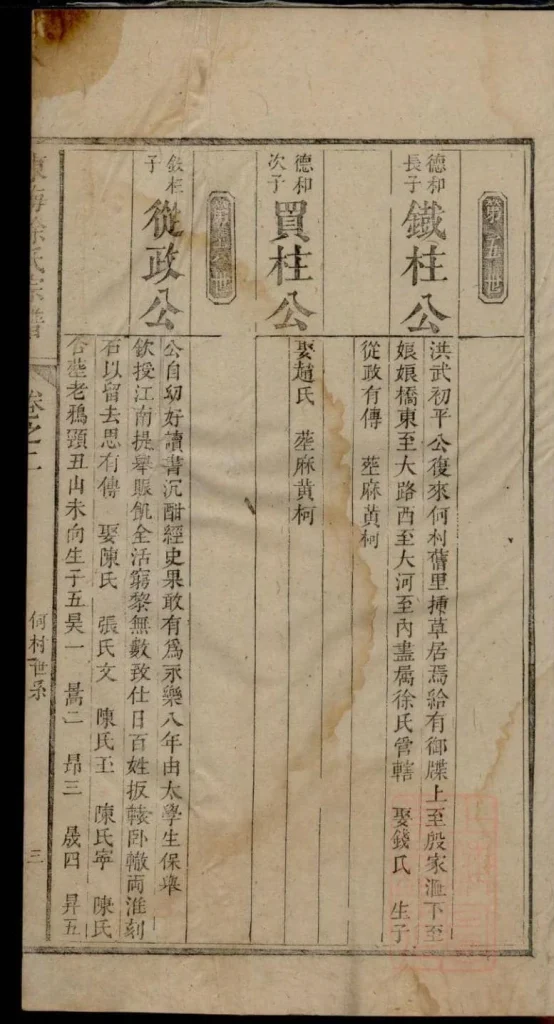 第五世
德和
長子
鐵柱公
洪武初平公復來何村舊里揷草居焉給有御牒上至殷家滙下至
娘娘橋東至大路西至大河至內盡屬徐氏管轄　娶錢氏　生子
從政有傳　塟麻黃柯
德和
次子
買柱公
娶趙氏　塟麻黃柯
第六世
鉄柱
子
從政公
公自幼好讀書沉酣經史果敢有爲永樂八年由太學生保舉
欽授江南提舉賑飢全活窮黎無數致仕日百姓扳轅卧轍両淮刻
石以留去思有傳　娶陳氏　張氏文　陳氏至　陳氏寧　陳氏
合塟老鴉頸丑山未向生子五昊一　暠二　昻三　晟四　昇五
東海徐氏宗譜
卷之二
何村世系
三